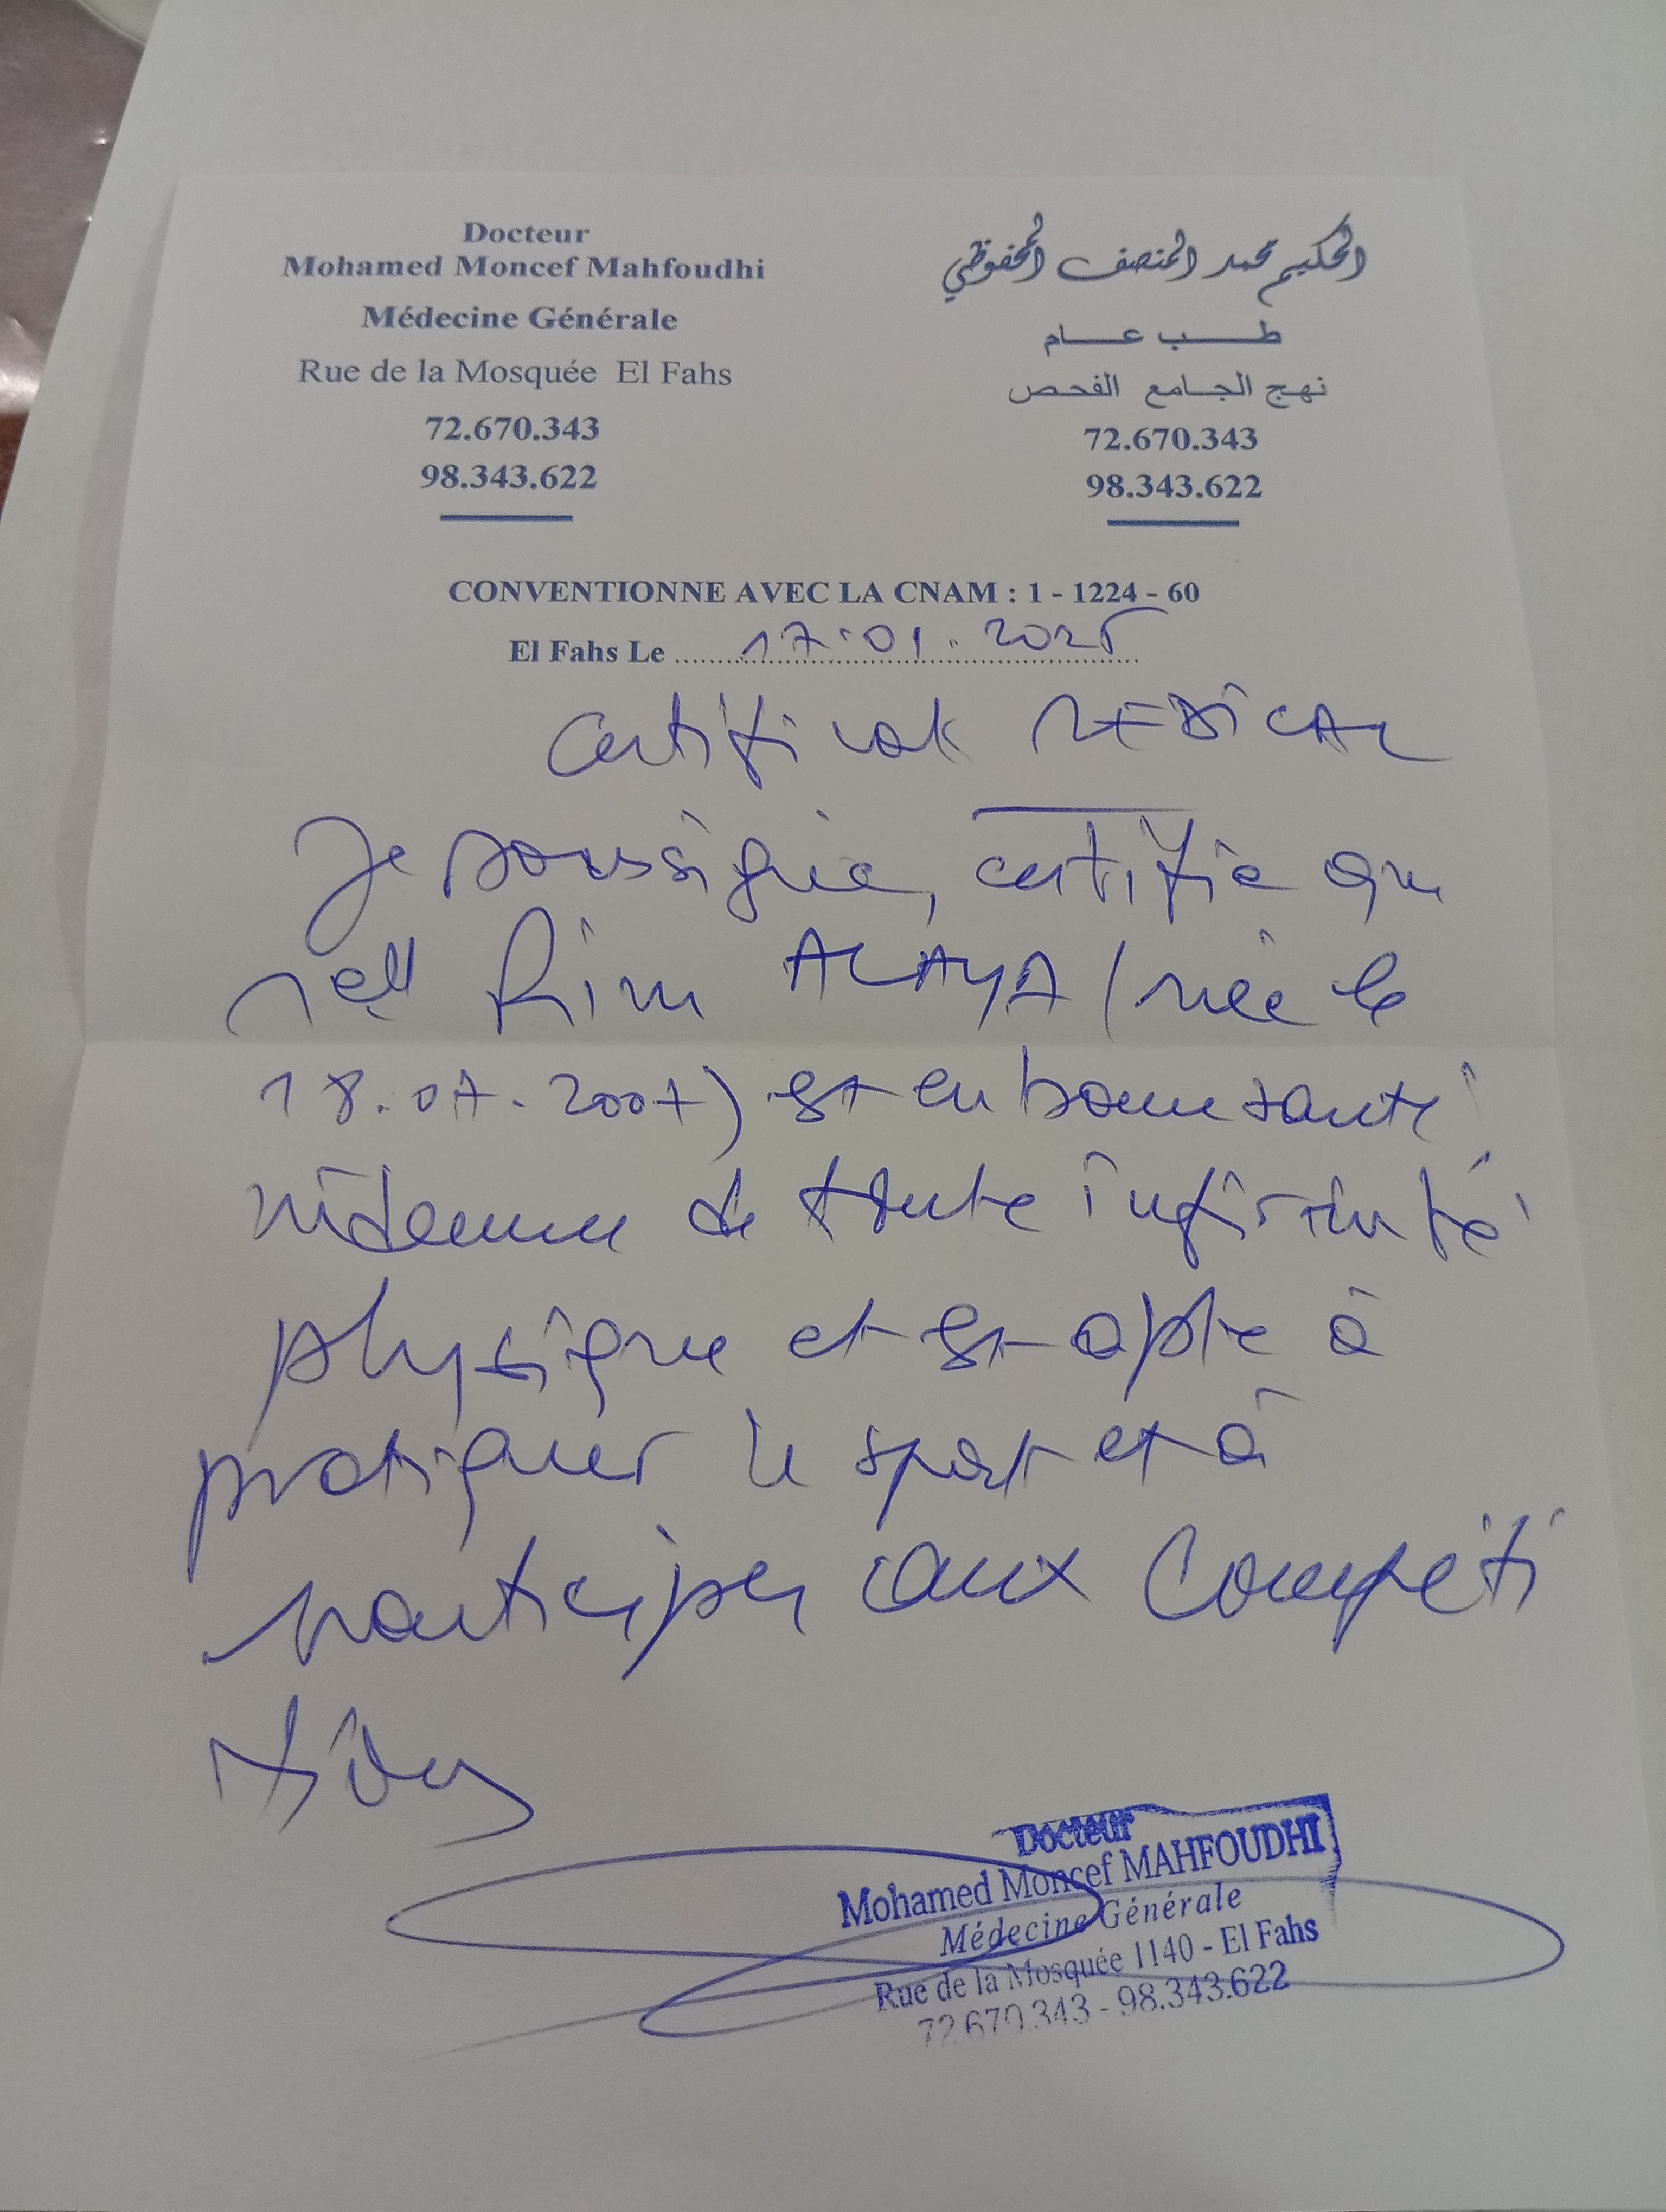 Docteur
Mohamed Moncef Mahfoudhi
Médecine Générale
Rue de la Mosquée El Fahs
72.670.343
98.343.622
الحكيم محمد المنصف المحفوظي
طب عام
نهج الجامع الفحص
72.670.343
98.343.622
CONVENTIONNE AVEC LA CNAM : 1 - 1224 - 60
El Fahs Le 17.01.2025
Certificat MEDICAL
Je soussigné, certifie que
Melle Rim ALAYA (née le
18.07.2007) est en bonne santé
indemne de toute infirmité
physique et est apte à
pratiquer le sport et à
participer aux compéti
tions
Docteur
Mohamed Moncef MAHFOUDHI
Médecine Générale
Rue de la Mosquée 1140 - El Fahs
72.670.343 - 98.343.622